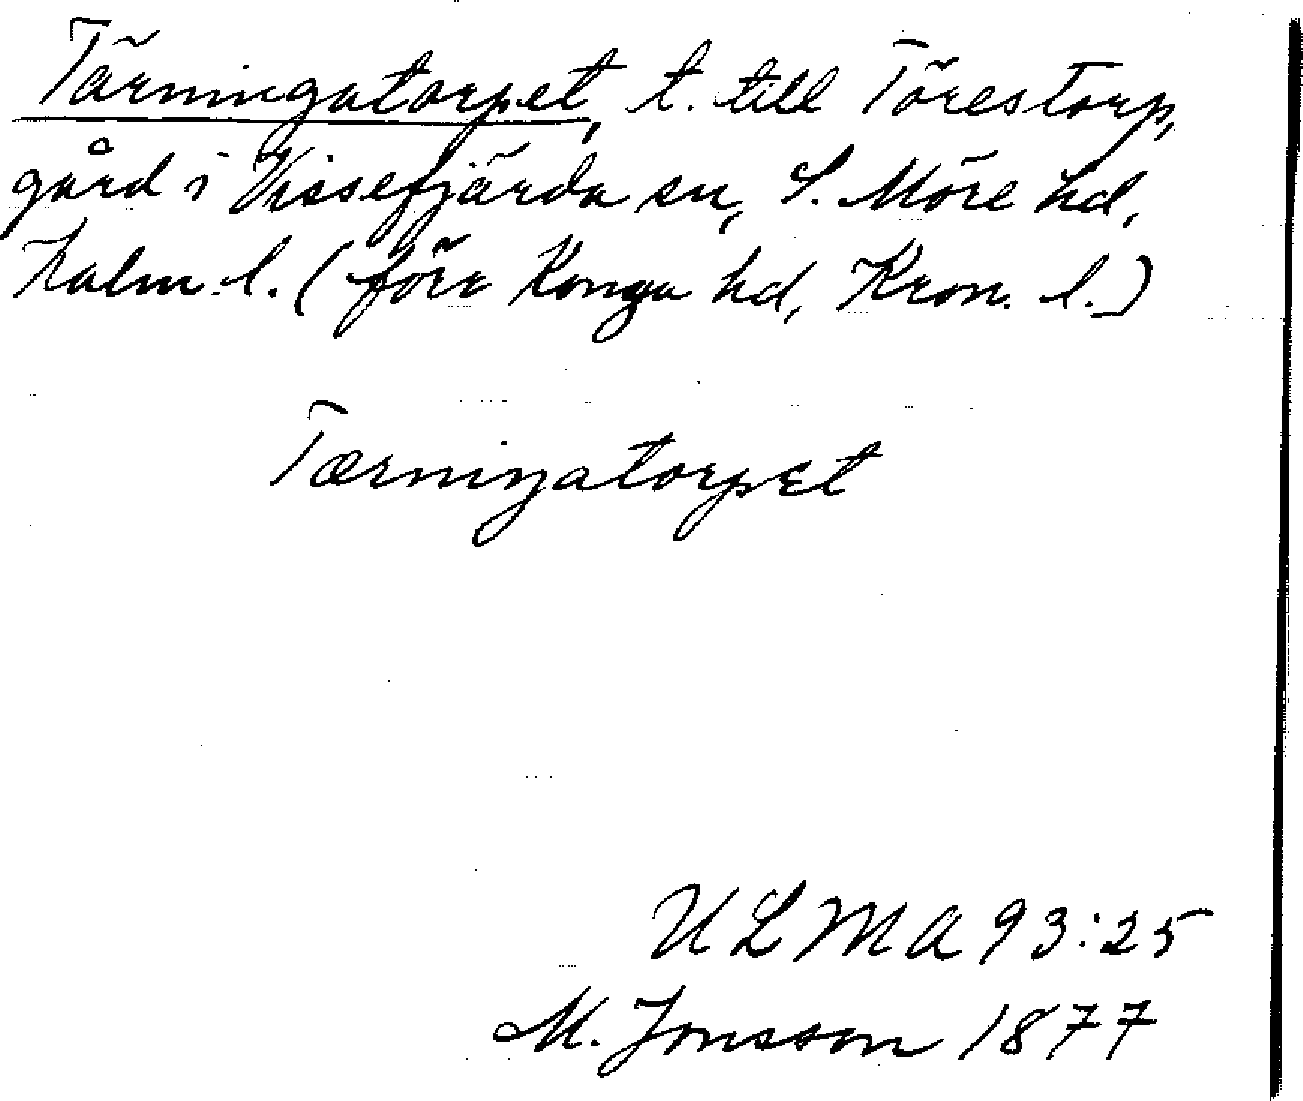 Tärningatorpet, t. till Törestorp,
gård i Vissefjärda sn, S. Möre hd,
Kalm. l. (förr Konga hd, Kron. l.)
Tærniŋatorpɛt
ULMA 93:25
M. Jonsson 1877